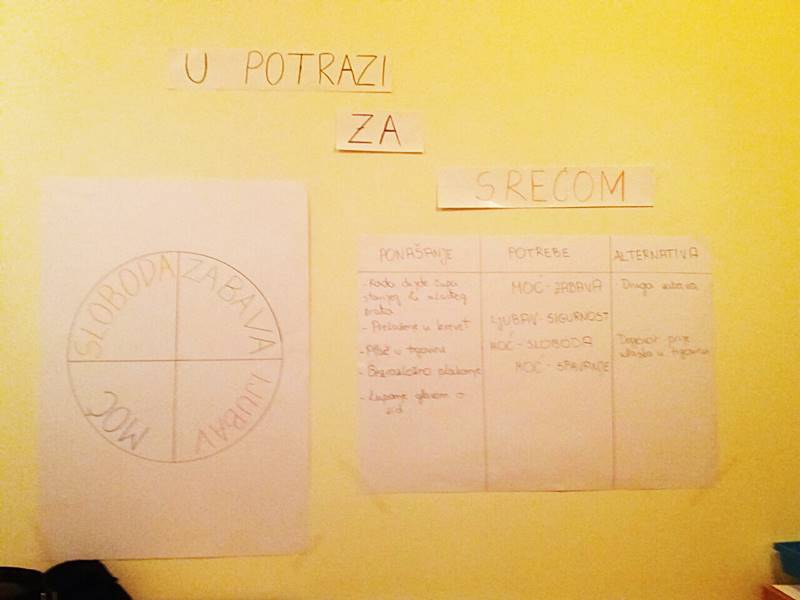 U POTRAZI
ZA
SREĆOM
SLOBODA
ZABAVA
MOĆ
LJUBAV
PONAŠANJE
POTREBE
ALTERNATIVA
- Kada dijete čupa
starijeg ili mlađeg
brata
MOĆ - ZABAVA
Druga zabava
- Prelaženje u krevet
LJUBAV - SIGURNOST
- Plač u trgovini
MOĆ - SLOBODA
Dogovor prije
ulaska u trgovinu
- Bezrazložno plakanje
MOĆ - SPAVANJE
- Lupanje glavom o
zid